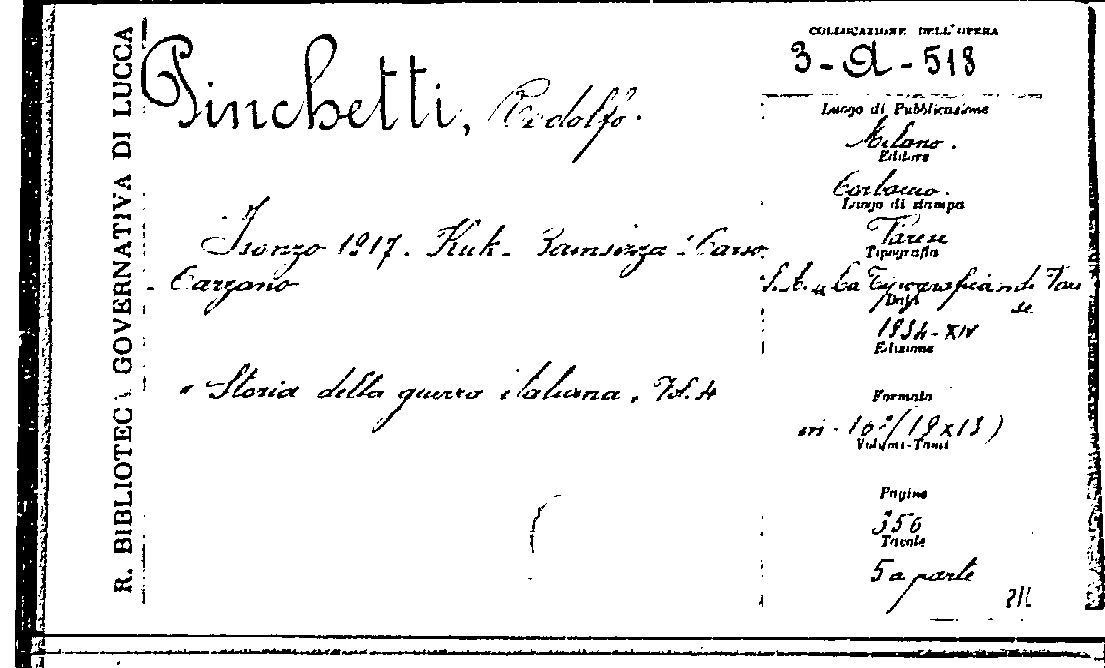 R. BIBLIOTECA GOVERNATIVA DI LUCCA
Pinchetti, Redolfo.
Isonzo 1917. Kuk - Bainsizza - Carso
- Carzano
"Storia della guerra italiana, Vol. 4
COLLOCAZIONE DELL'OPERA
3-A-518
Luogo di Pubblicazione
Milano.
Editore
Corbaccio.
Luogo di stampa
Varese
Tipografia
S.A. "La Tipografica di Vare
se
Data
1934-XIV
Edizione
Formato
in-16°(19x13)
Volumi-Tomi
Pagine
350
Tavole
5 a parte